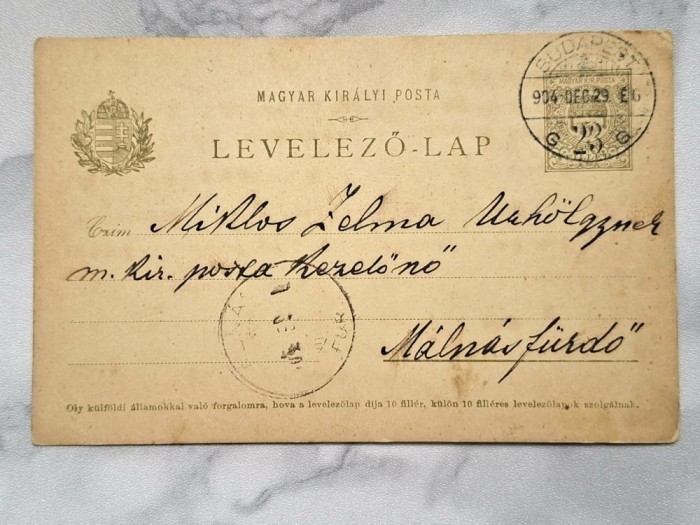 BUDAPEST
904 DEC 29. E6
G G
MAGYAR KIR. POSTA
MAGYAR KIRÁLYI POSTA
LEVELEZŐ-LAP
Czim Miklos Zelma Urhölgynek
m. kir. posta kezelőnő
Málnásfürdő
Oly külföldi államokkal való forgalomra, hova a levelezőlap dija 10 fillér, külön 10 filléres levelezőlapok szolgálnak.